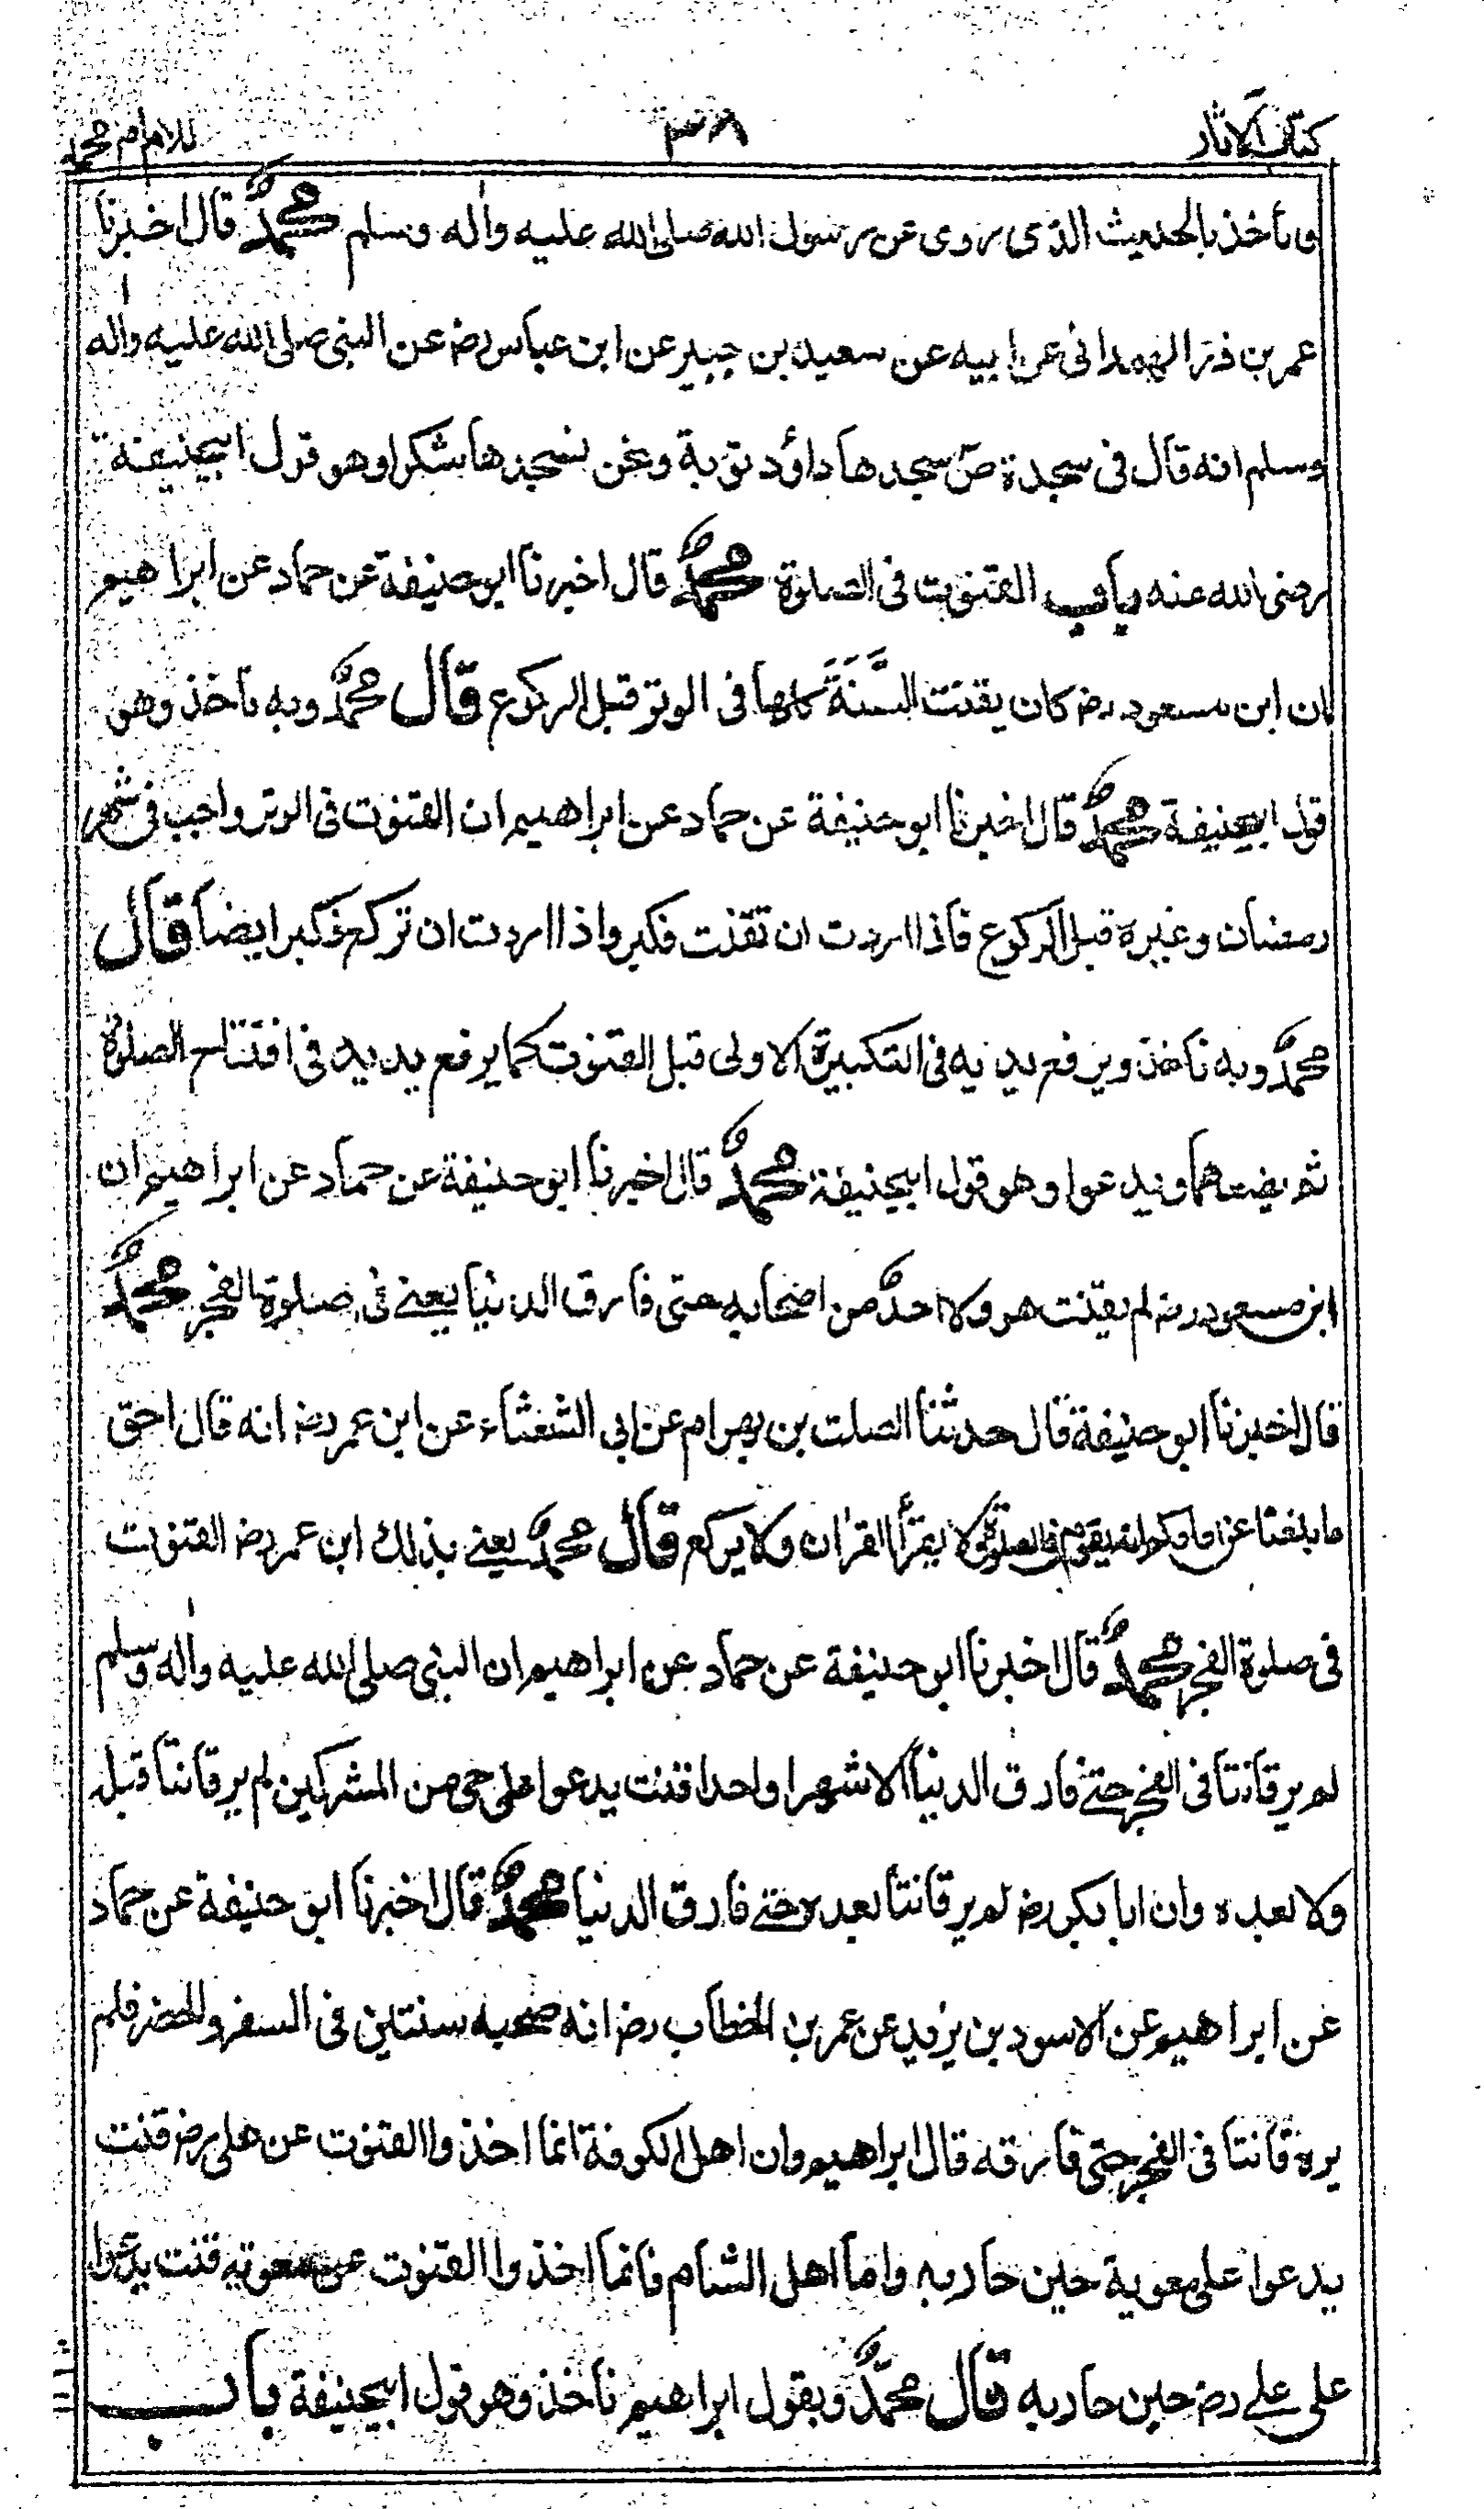 كتاب الآثار ٣٨ للامام محمد
و نأخذ بالحديث الذى روى عن رسول الله صلى الله عليه واٰله وسلم محمدٌ قال اخبرنا
عمر بن ذر الهمدانى عن ابيه عن سعيد بن جبير عن ابن عباس رض عن النبى صلى الله عليه واٰله
وسلم انه قال فى سجدة صٓ سجدها داؤد توبة ونحن نسجدها شكرا وهو قول ابيحنيفة
رضى الله عنه باب القنوت فى الصلوة محمدٌ قال اخبرنا ابو حنيفة عن حماد عن ابراهيم
ان ابن مسعود رض كان يقنت السَّنَةَ كلها فى الوتر قبل الركوع قال محمدٌ وبه ناخذ وهو
قول ابيحنيفة محمدٌ قال اخبرنا ابو حنيفة عن حماد عن ابراهيم ان القنوت فى الوتر واجب فى شهر
رمضان وغيره قبل الركوع فاذا اردت ان تقنت فكبر واذا اردت ان تركع فكبر ايضا قال
محمدٌ وبه ناخذ ويرفع يديه فى التكبيرة الاولى قبل القنوت كما يرفع يديه فى افتتاح الصلوة
ثم يضعهما ويدعوا وهو قول ابيحنيفة محمدٌ قال اخبرنا ابو حنيفة عن حماد عن ابراهيم ان
ابن مسعود رض لم يقنت هو ولا احدٌ من اصحابه حتى فارق الدنيا يعنے فى صلوة الفجر محمدٌ
قال اخبرنا ابو حنيفة قال حدثنا الصلت بن بهرام عن ابى الشعثاء عن ابن عمر رض انه قال احق
ما بلغنا عن امامكم انه يقوم فى الصلوة لا يقرأ القراٰن ولا يركع قال محمدٌ يعنے بذلك ابن عمر رض القنوت
فى صلوة الفجر محمدٌ قال اخبرنا ابو حنيفة عن حماد عن ابراهيم ان النبى صلى الله عليه واٰله وسلم
لم ير قانتا فى الفجر حتے فارق الدنيا الا شهرا واحدا قنت يدعوا على حى من المشركين لم ير قانتا قبله
ولا بعده وان ابا بكر رض لم ير قانتا بعده حتے فارق الدنيا محمدٌ قال اخبرنا ابو حنيفة عن حماد
عن ابراهيم عن الاسود بن يزيد عن عمر بن الخطاب رض انه صحبه سنتين فى السفر والحضر فلم
يره قانتا فى الفجر حتى فارقه قال ابراهيم وان اهل الكوفة انما اخذوا القنوت عن على رض قنت
يدعوا على معوية حين حاربه واما اهل الشام فانما اخذوا القنوت عن معوية قنت يدعوا
على علے رض حين حاربه قال محمدٌ وبقول ابراهيم ناخذ وهو قول ابيحنيفة باب